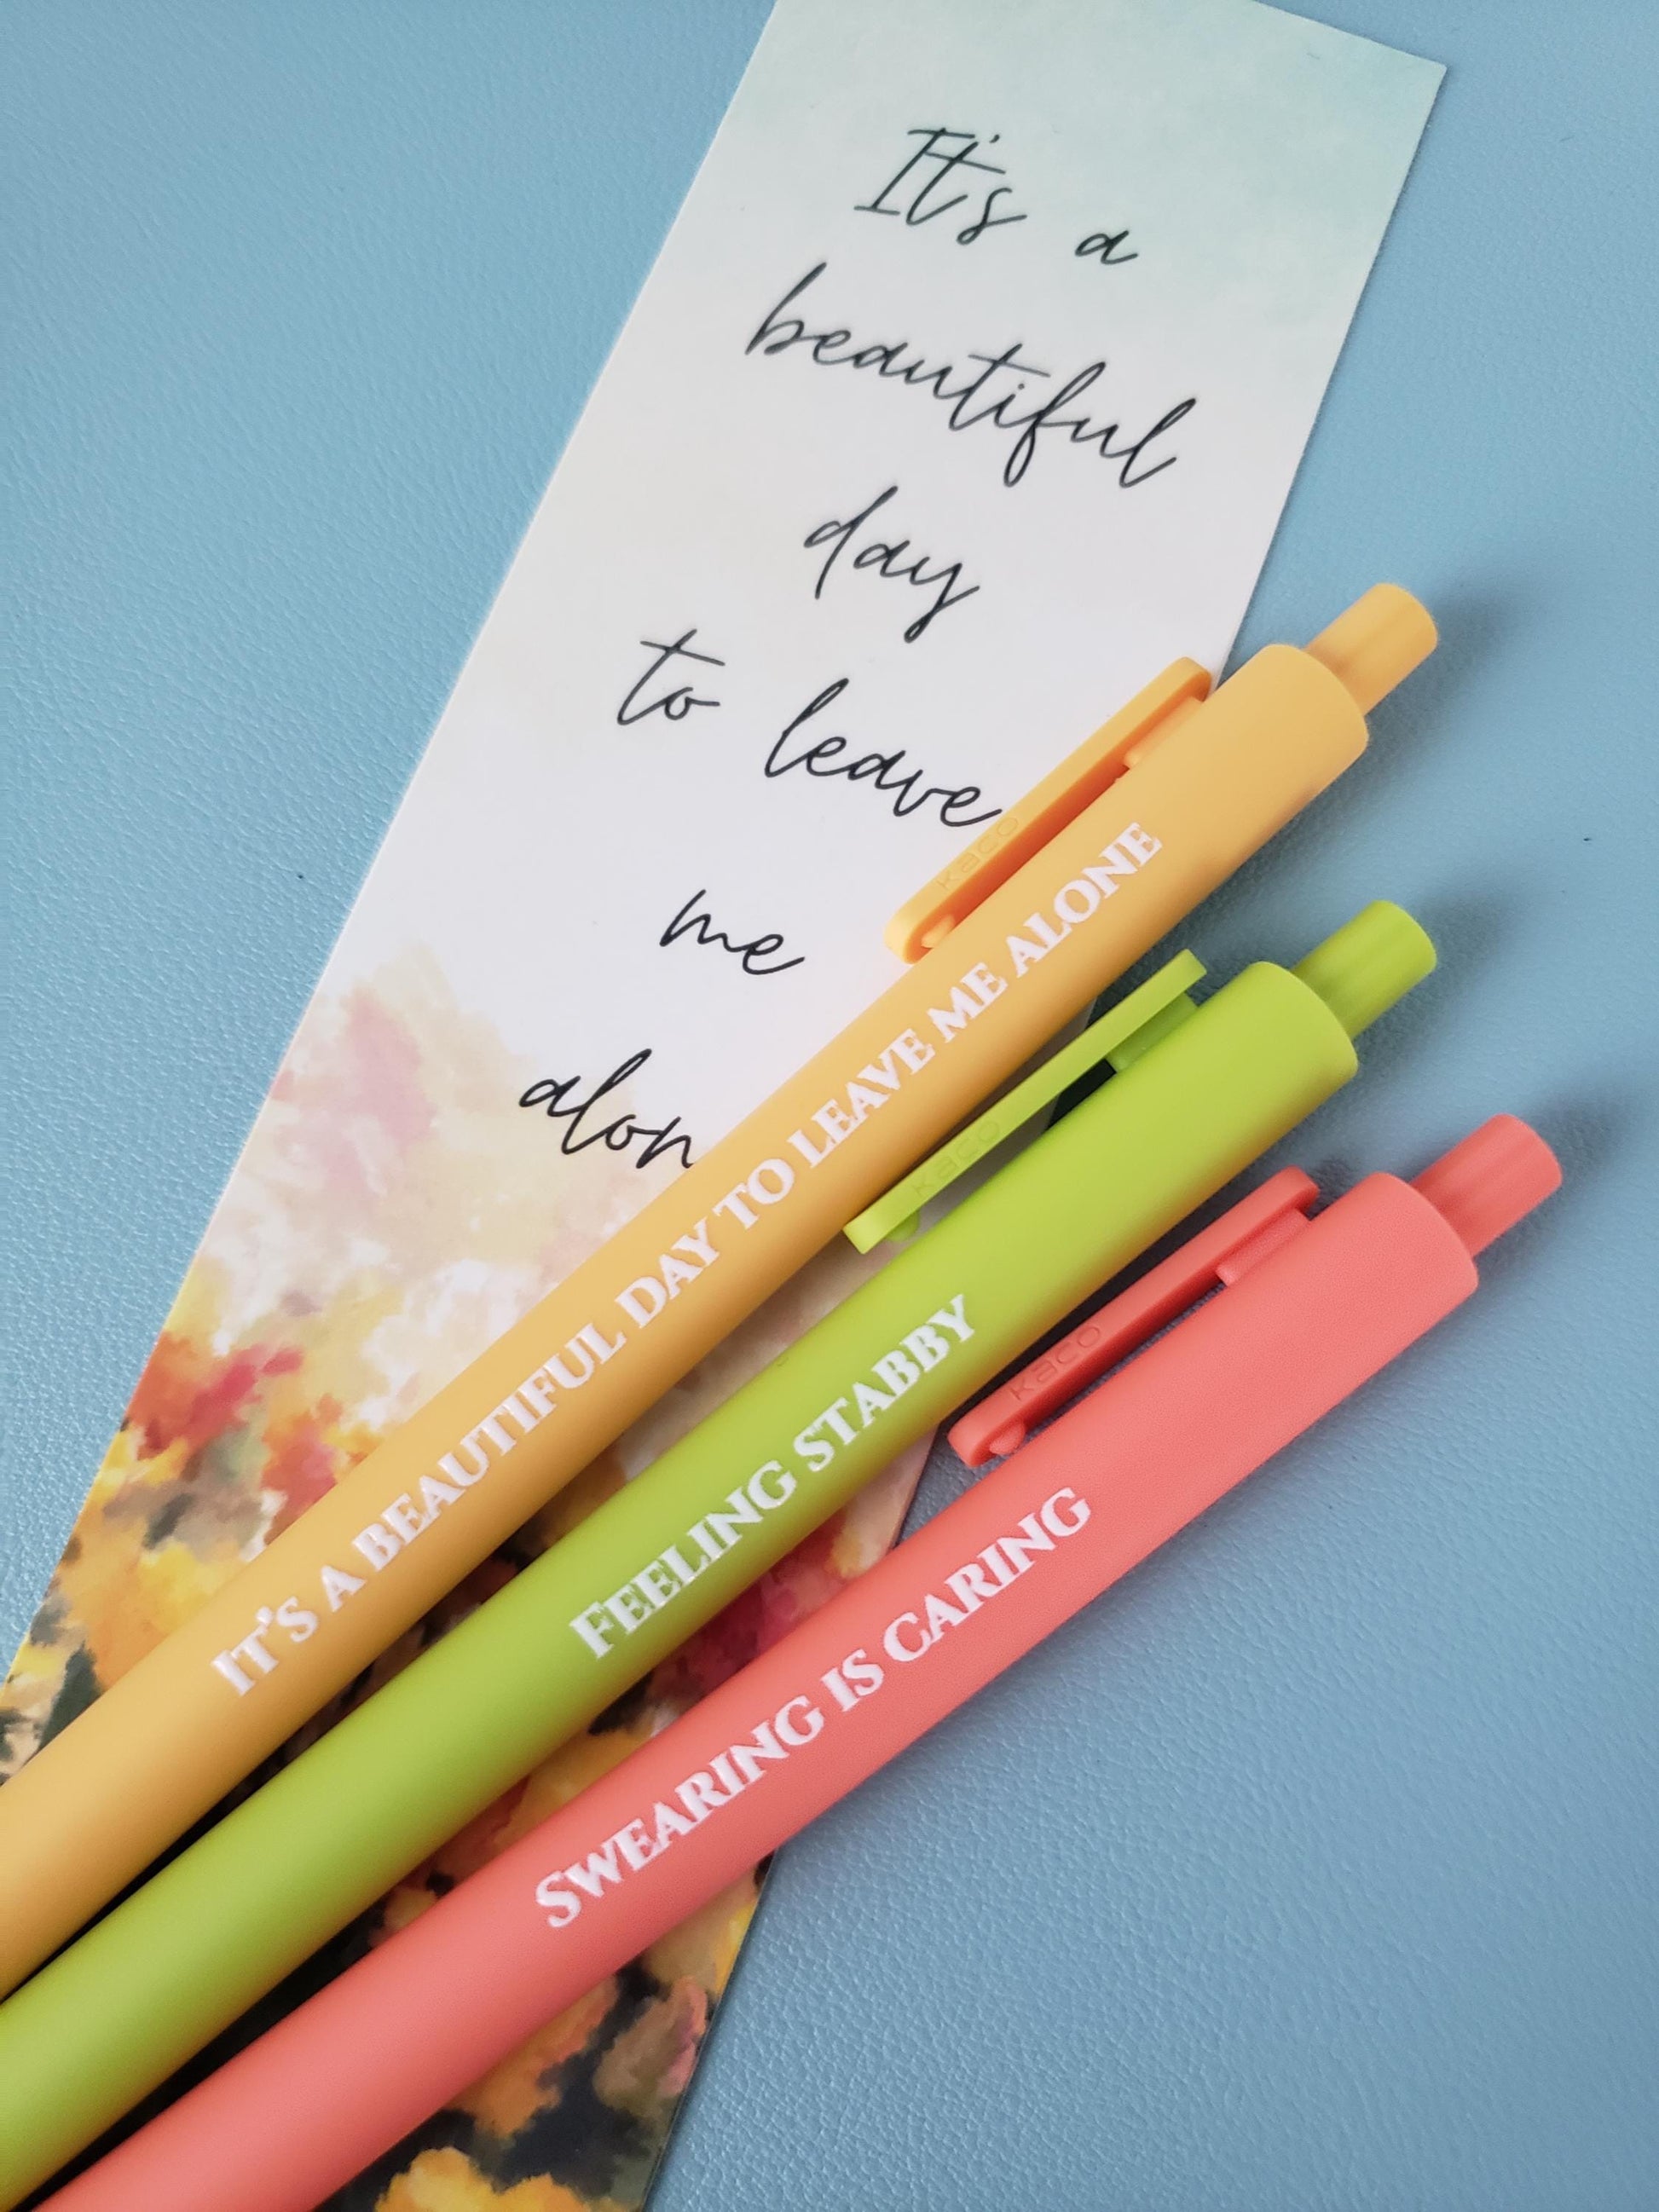 It's a
beautiful
day
to leave
me
alon
kaco
IT'S A BEAUTIFUL DAY TO LEAVE ME ALONE
kaco
FEELING STABBY
kaco
SWEARING IS CARING